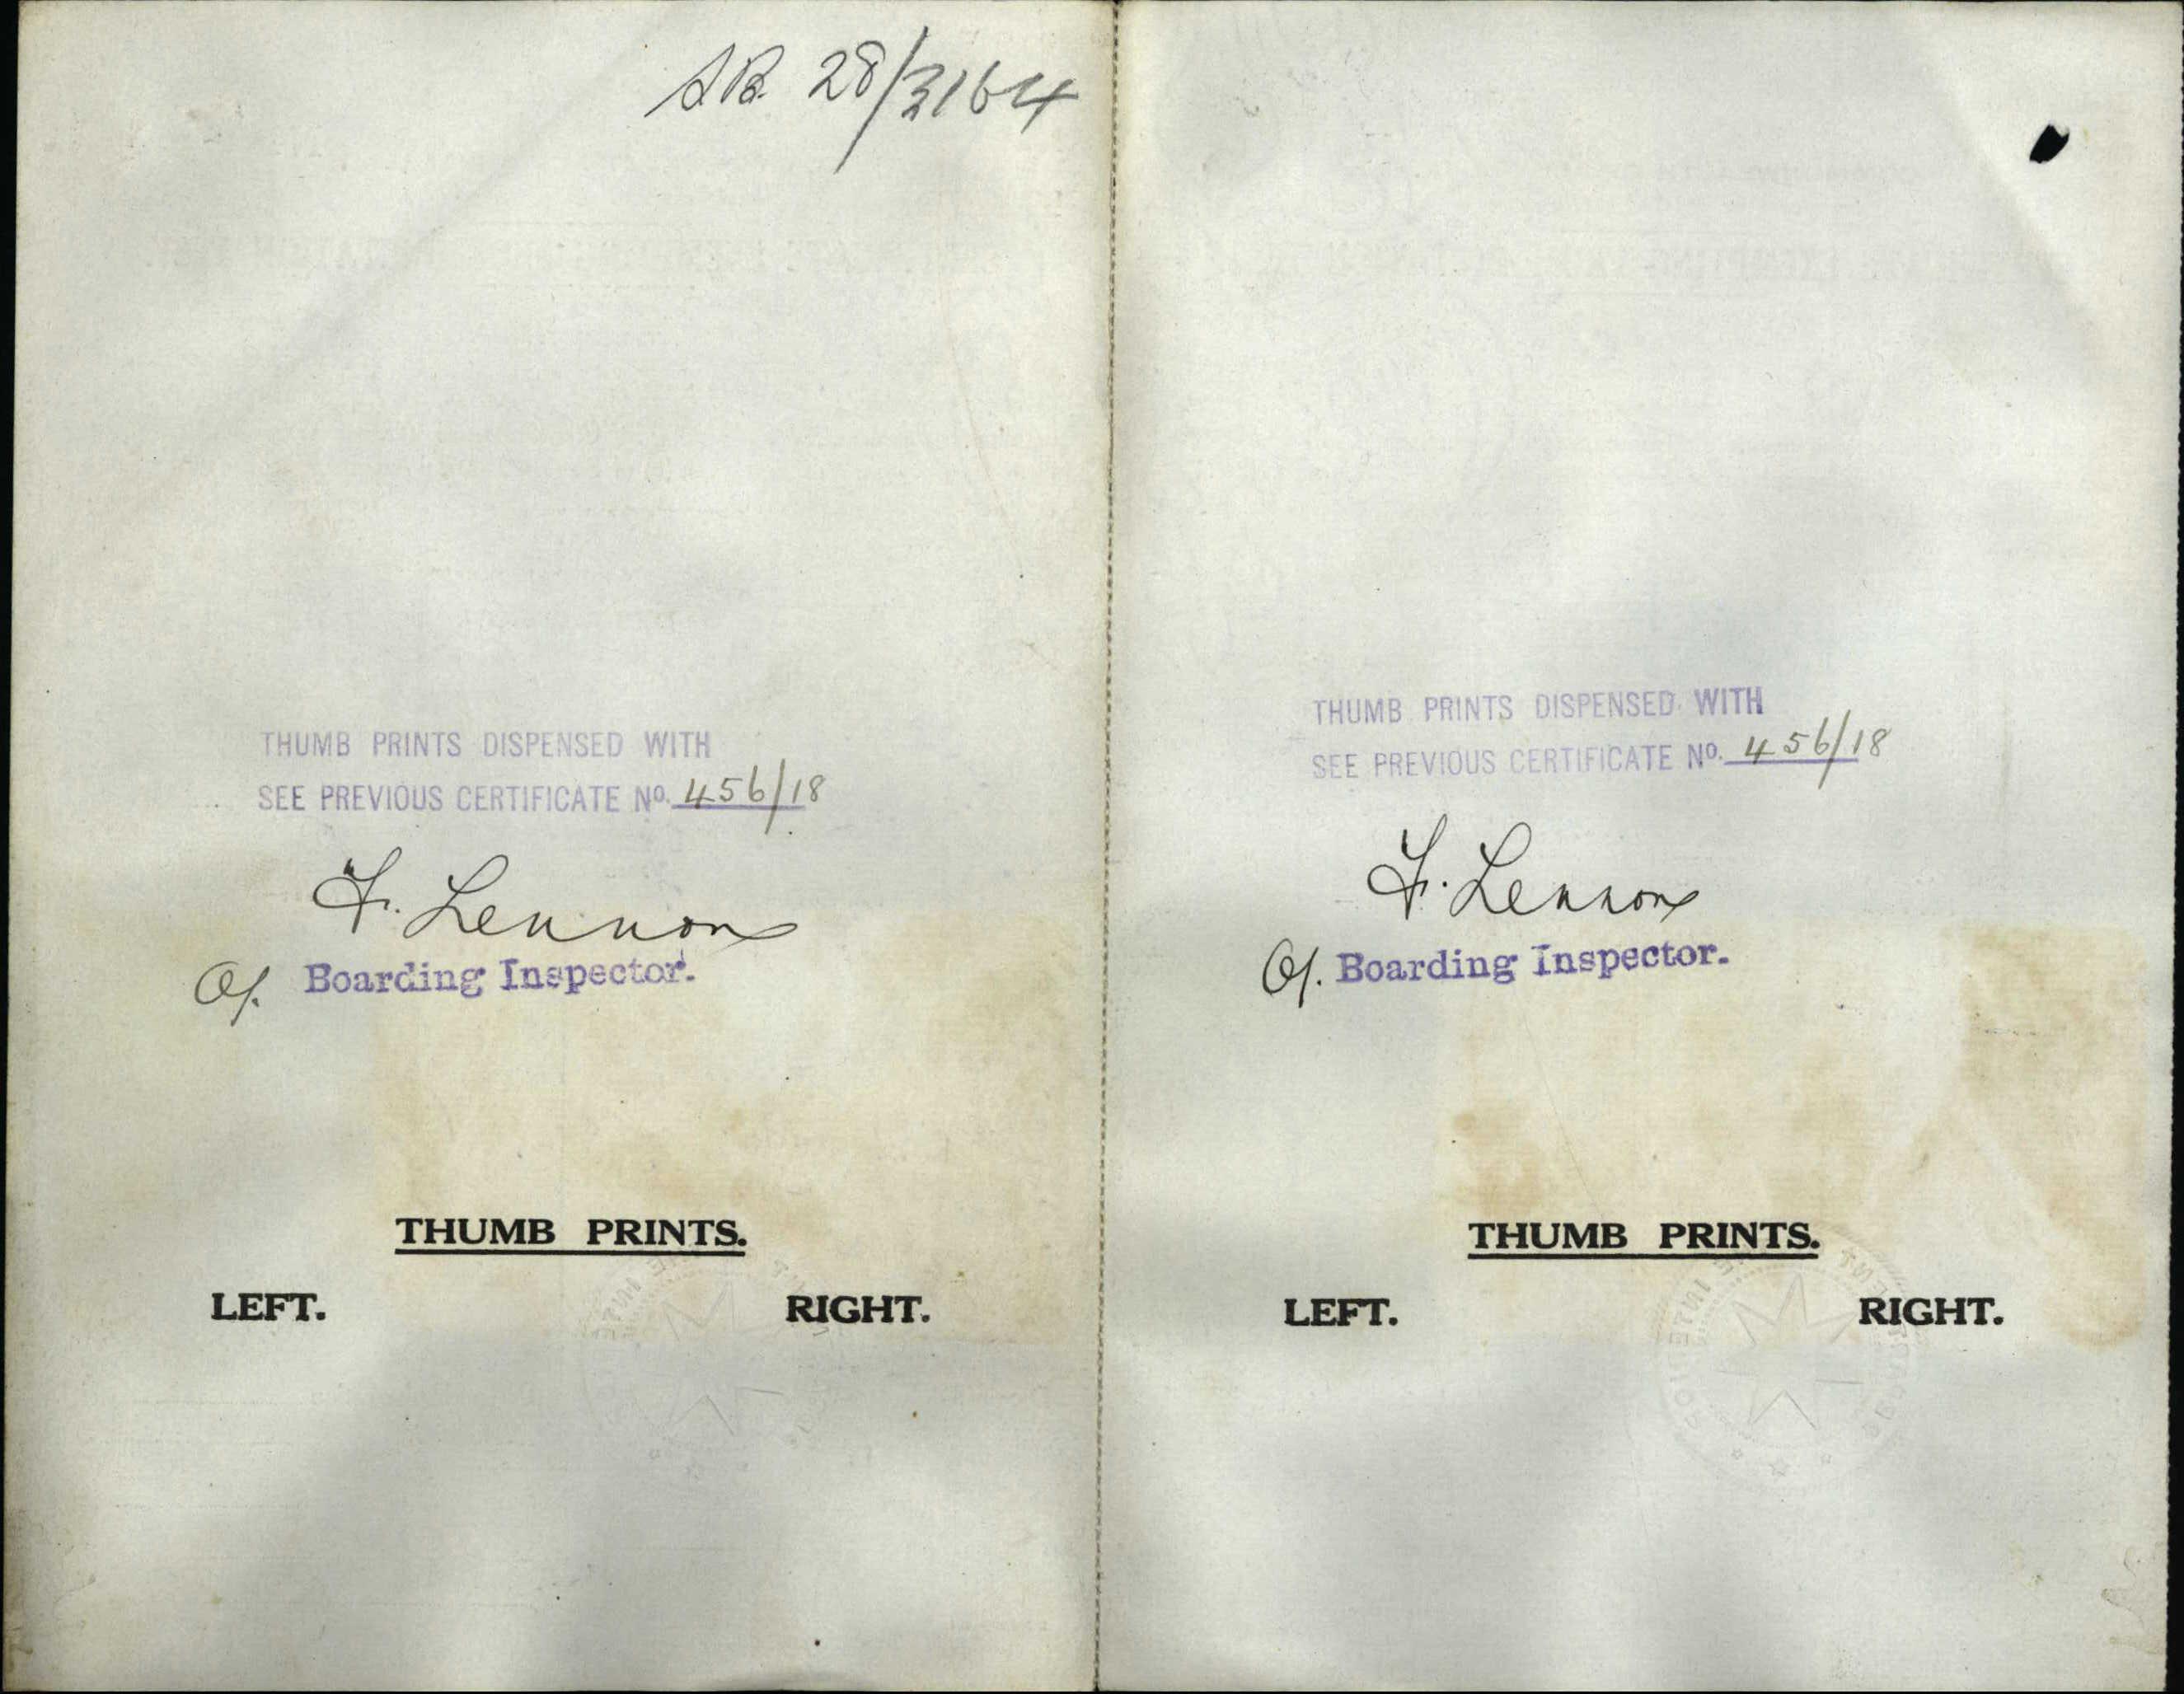 28/3164
THUMB PRINTS DISPENSED WITH
SEE PREVIOUS CERTIFICATE No. 456/18
F. Lennon
Boarding Inspector.
THUMB PRINTS.
LEFT. RIGHT.
THUMB PRINTS DISPENSED WITH
SEE PREVIOUS CERTIFICATE No. 456/18
F. Lennon
Boarding Inspector.
THUMB PRINTS.
LEFT. RIGHT.